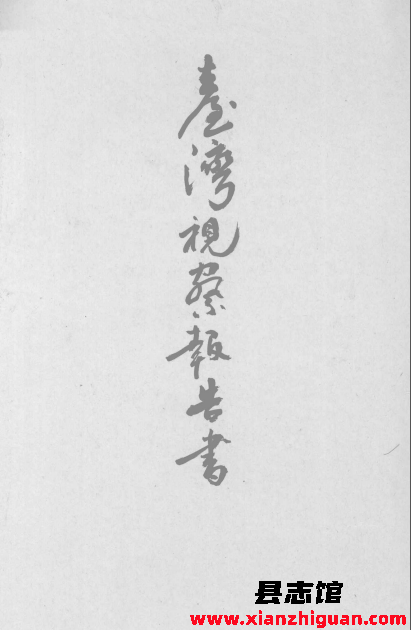 臺灣視察報告書
县志馆
www.xianzhiguan.com